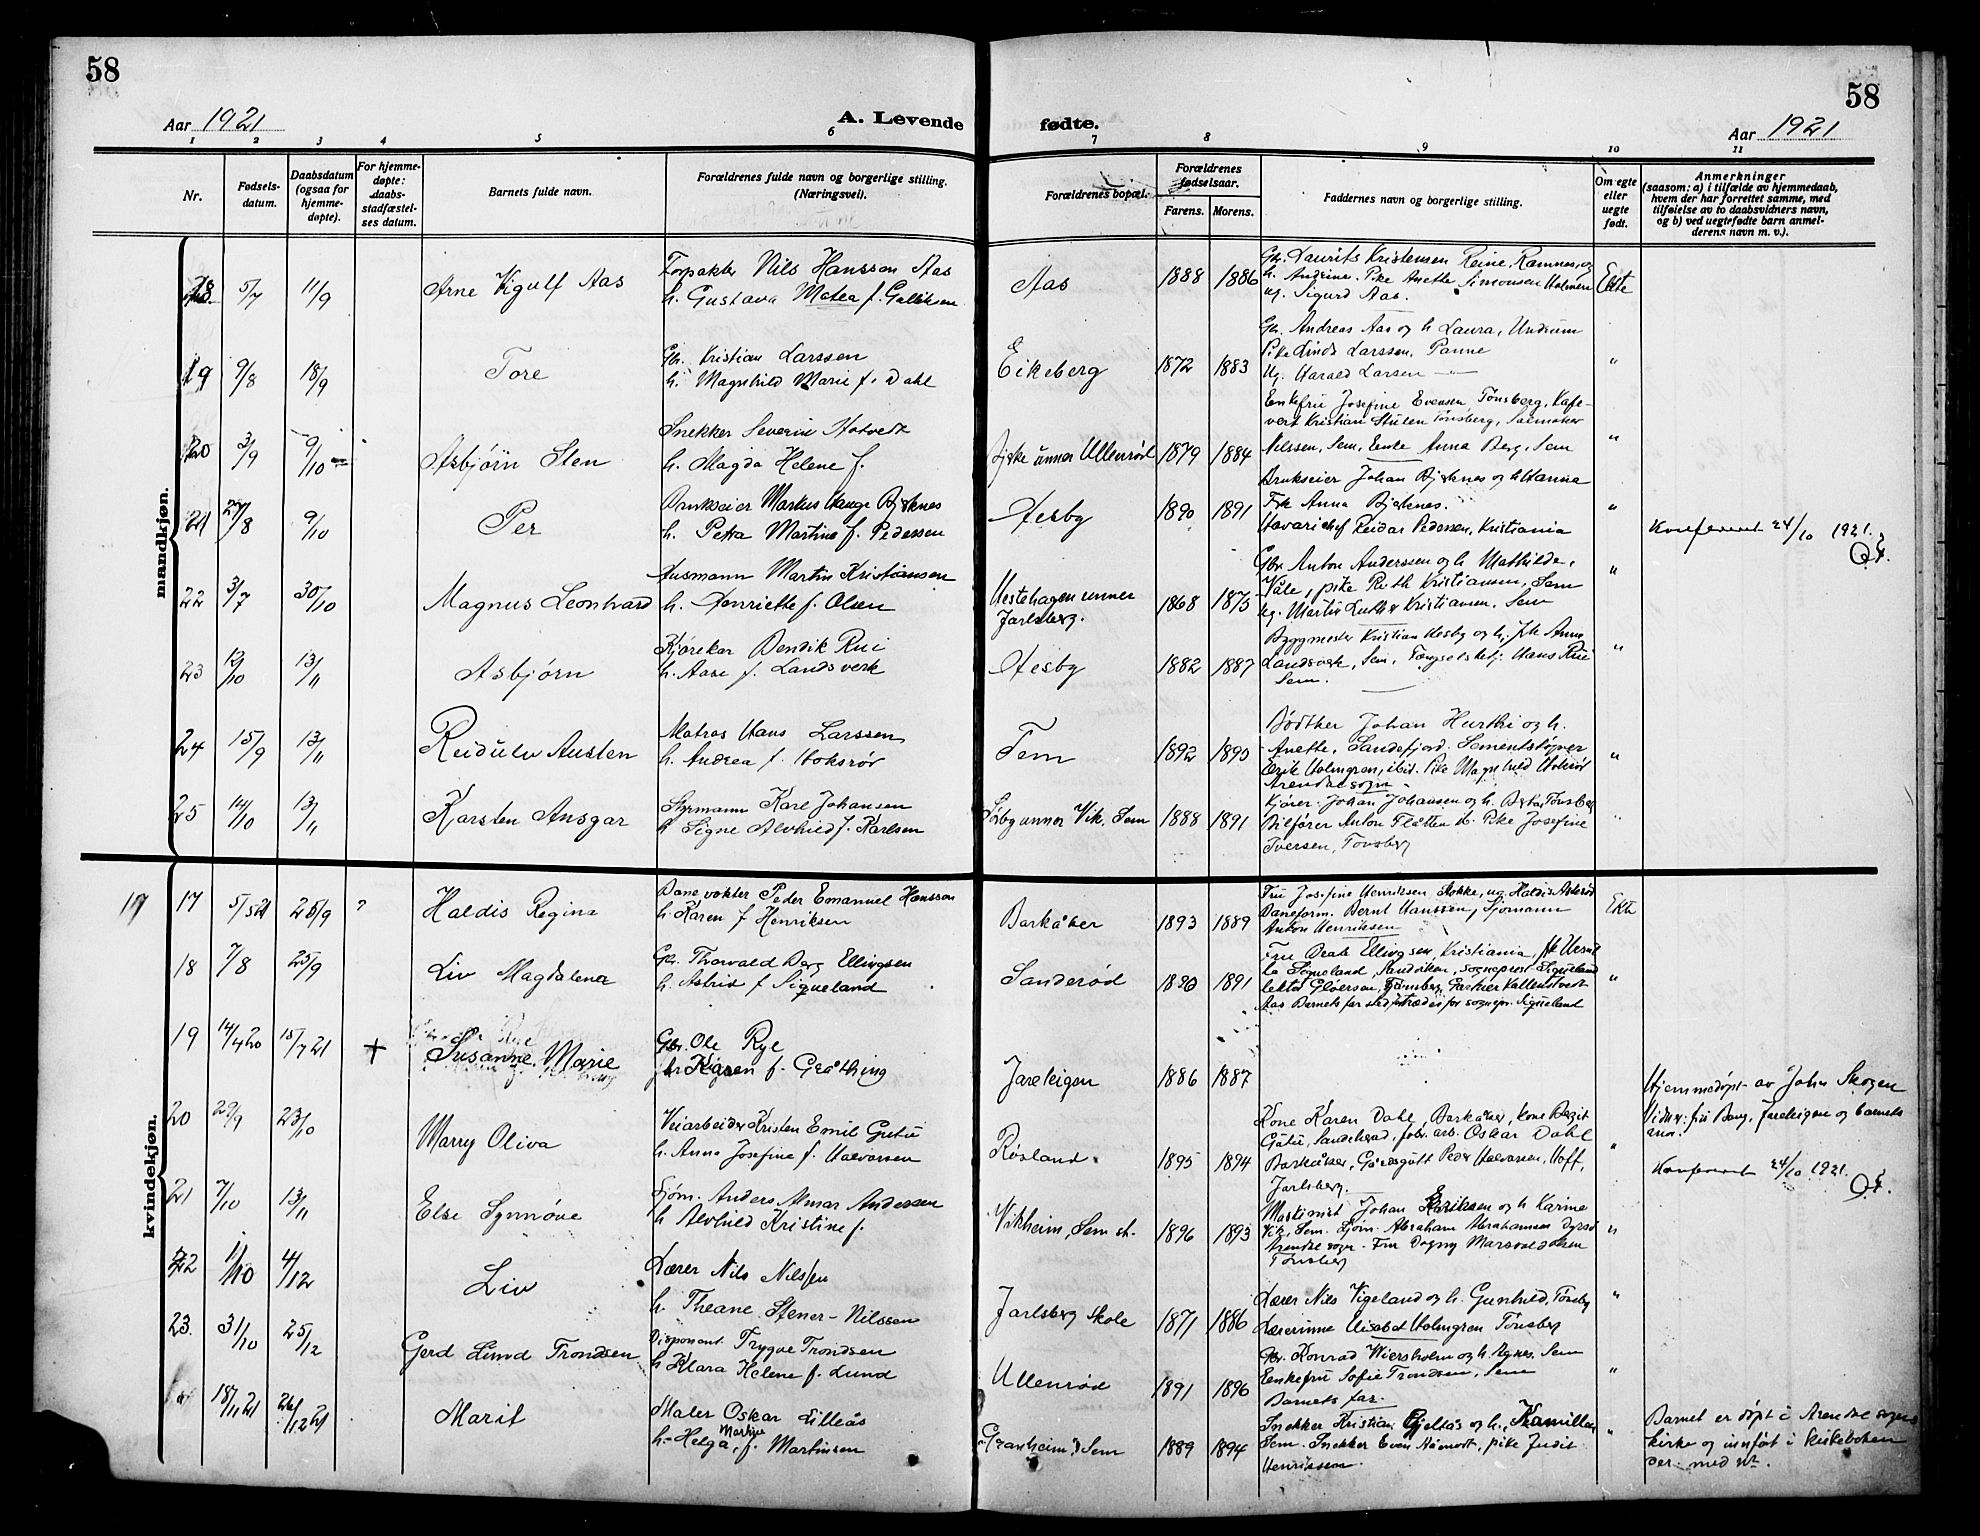 58
58
Aar 1921
A. Levende
fødte.
Aar 1921
1 2 3 4 5 6 7 8 9 10 11
Nr.
Fødsels-
datum.
Daabsdatum
(ogsaa for
hjemme-
døpte).
For hjemme-
døpte:
daabs-
stadfæstel-
ses datum.
Barnets fulde navn.
Forældrenes fulde navn og borgerlige stilling.
(Næringsvei).
Forældrenes bopæl.
Forældrenes
fødselsaar.
Farens. Morens.
Faddernes navn og borgerlige stilling.
Om egte
eller
uegte
født.
Anmerkninger
(saasom: a) i tilfælde av hjemmedaab,
hvem der har forrettet samme, med
tilføielse av to daabsvidners navn,
og b) ved uegtefødte barn anmel-
derens navn m. v.).
mandkjøn.
18 5/7 11/9 Arne Vigulf Aas
Forpakter Nils Hansson Aas
h. Gustava Matea f. Gulliksen
Aas 1888 1886
Gbr. Laurits Kristensen Reine, Ramnes, og
h. Andrine. Pike Anette Simonsen Holmen
ug. Sigurd Aas.
Ekte
19 9/8 18/9 Tore
Gbr. Kristian Larssen
h. Magnhild Marie f. Dahl
Eikeberg 1872 1883
Gbr. Andreas Aas og h Laura, Undrum
Pike Linda Larssen, Panne
Ug. Harald Larsen
"
20 3/9 9/10 Asbjørn Sten
Snekker Severin Hotvedt
h. Magda Helene f.
Bjerke unner Ullenrød 1879 1884
Enkefru Josefine Evensen Tønsberg, Kafe-
vert Kristian Stulen Tønsberg, Salmaker
Nilssen, Sem, Enke Anna Berg, Sem
"
21 27/8 9/10 Per
Brukseier Markus Hauge Bjerknes
h. Petra Martine f. Pedersen
Hesby 1890 1891
Brukseier Johan Bjerknes og h Hanna
Frk Anna Bjerknes.
Havarichef Reidar Pedersen, Kristiania
"
Konferert 24/10 1921.
22 3/7 30/10 Magnus Leonhard
Husmann Martin Kristiansen
h. Henriette f. Olsen
Hestehagen unner
Jarlsberg. 1868 1875
Gbr Anton Anderssen og h Mathilde,
Våle, pike Ruth Kristiansen, Sem
ug. Martin Luther Kristiansen, Sem
"
23 12/10 13/11 Asbjørn
Kjørekar Bendik Rui
h. Aase f. Landsverk
Hesby 1882 1887
Byggmester Kristian Hesby og h, frk Anna
Landsverk, Sem, Fængselsbetj. Hans Rui
Sem.
"
24 15/9 13/11 Reidulv Austen
Matros Hans Larssen
h. Andrea f. Hoksrør
Tem 1892 1895
Bødtker Johan Hurthi og h.
Anette, Sandefjord. Sementstøper
Erik Holmgren, ibid. Pike Magnhild Holerør
Arendal sogn.
"
25 14/10 13/11 Karsten Ansgar
Styrmann Karl Johansen
h Signe Alvhild f. Karlsen
Solby unner Vik, Sem 1888 1891
Kjører. Johan Johansen og h. Berta, Tønsberg
Bilfører Anton Flåtten ib. Pike Josefine
Iversen, Tønsberg
"
kvindekjøn.
17
17 5/5 21 25/9 Haldis Regina
Banevokter Peder Emanuel Hansson
h. Karen f Henriksen
Barkåker 1893 1889
Fru Josefine Henriksen, Stokke, ug. Haldis Asterød
Baneform. Bernt Hanssen, Sjømann
Anton Henriksen
Ekte
18 7/8 25/9 Liv Magdalena
Gbr. Thorvald Berg Ellingsen
h. Astrid f Siqueland
Sanderød 1890 1891
Fru Beate Ellingsen, Kristiania, frk Hernil
la Siqueland, Sandviken, sogneprest Siqueland
lektor Gløersen, Tønsberg, Partier Kallenstvedt
Aas Barnets far sted/inträdes for sognepr. Siqueland
"
19 14/4 20 15/7 21 + Susanne. Marie
Gbr. Ole Rye
h. Karen f. Gråthing
Jareteigen 1886 1887
Hjemmedøpt av John Skogen
Vidner: fru Bang, Jareteigen og barnets
mor.
20 29/9 23/10 Marry Oliva
Veiarbeider Kristen Emil Gutu
h. Anna Josefine f. Halvorsen
Røsland. 1895 1894
Kone Karen Dahl, Barkåker, kone Bergit
Gutu, Sandeherad, fabr. arb. Oskar Dahl
Barkåker, Gårdsgutt Peder Halvorsen, Hoff,
Jarlsberg.
"
Konferert 24/10 1921.
21 7/10 13/11 Else Synnøve
Sjøm. Anders Almar Andersen
h Alvhild Kristine f.
Vikheim, Sem st. 1896 1893
Maskinist Johan Eriksen og h Karine
Vik, Sem. Sjøm. Abraham Abrahamsen Dyrsø
Arendal sogn. Fru Dagny Marsvold Olsen
Tønsberg
"
22 11/10 4/12 Liv
Lærer Nils Nilssen
h. Theane Stener-Nilssen
Jarlsberg Skole 1871 1886
Lærer Nils Vigeland og h. Gunhild, Tønsbg
Lærerinne Elisabet Holmgren Tønsberg
"
23. 31/10 25/12 Gerd Lund Trondsen
Disponent Trygve Trondsen
h Klara Helene f. Lund
Ullenrød 1891 1896
Gbr. Konrad Wiersholm og h. Agnes, Sem
Enkefru Sofie Trondsen, Sem
Barnets far.
"
18/11 21 26/12 21 Marit
Maler Oskar Lilleås
h. Helga Martine f. Martinsen
"Granheim" Sem 1889 1894
Snekker Kristian Gjeltås og h., Kamilla
Sem. Snekker Even Aamodt, pike Judit
Henrikssen.
"
Barnet er døpt i Arendal sogns
kirke og innført i kirkeboken
der med Nr.